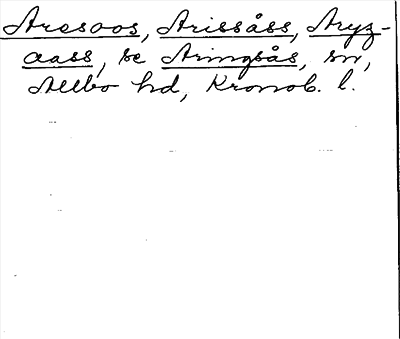 Aresoos, Arissåss, Aryz-
aass, se Aringsås, sn,
Allbo hd, Kronob. l.